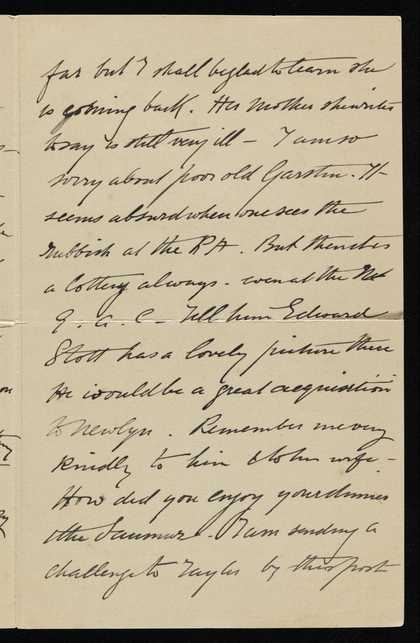 far but I shall be glad to learn she
is coming back. Her mother she writes
to say is still very ill – I am so
sorry about poor old Garstin. It
seems absurd when one sees the
rubbish at the R A. But then its
a lottery always – even at the
G. a. C – Tell him Edward
Stott has a lovely picture there
He would be a great acquisition
to Newlyn. Remember me very
kindly to him & to his wife –
How did you enjoy your dinner
& the . I am sending a
challenge to Tayler by this post